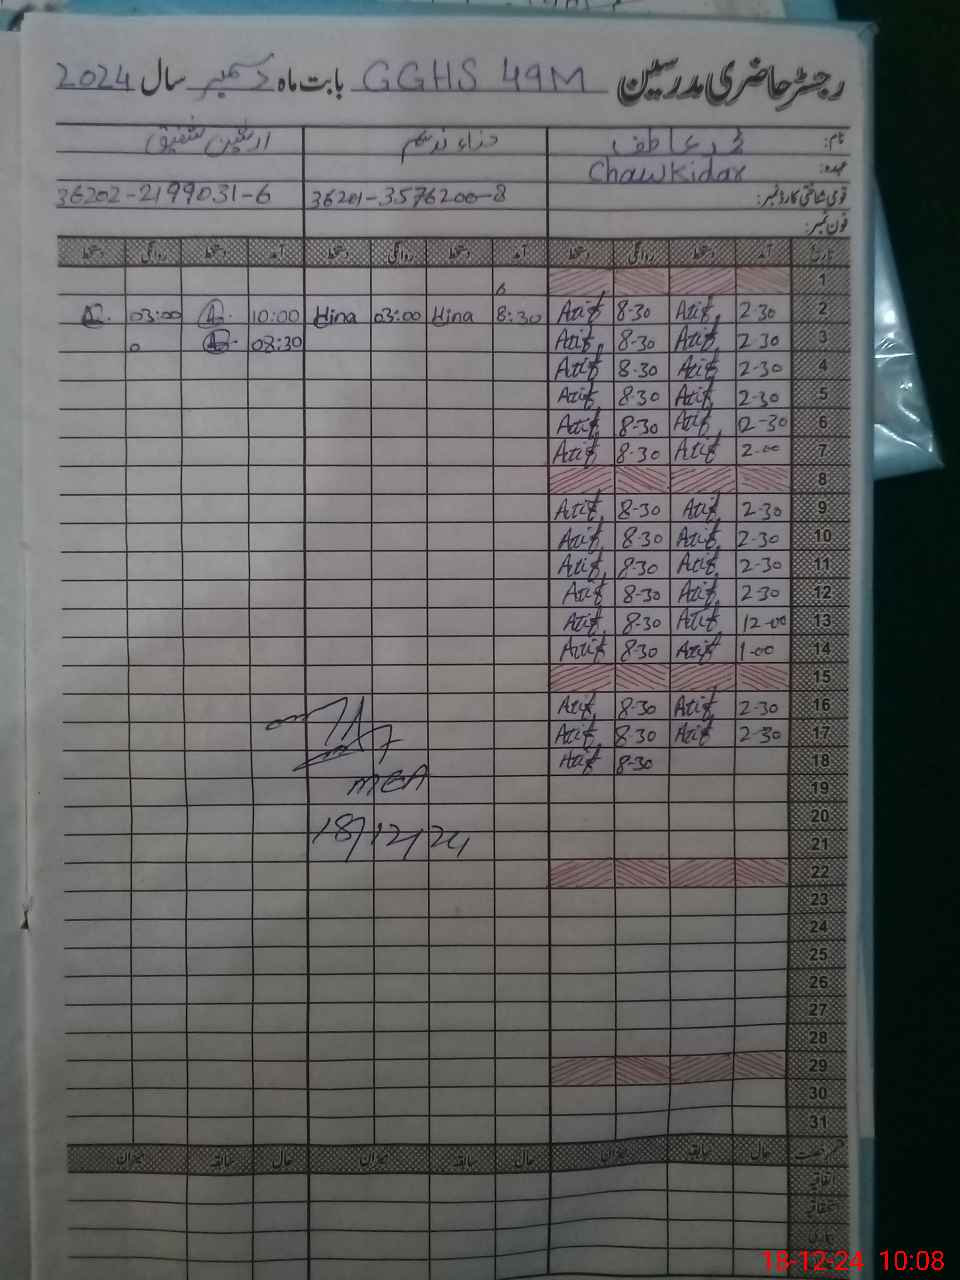 رجسٹر حاضری مدرسین GGHS 49M بابت ماہ دسمبر سال 2024
نام: محمد عاطف حناء ندیم شفیق
عہدہ: Chawkidar
قومی شناختی کارڈ نمبر: 36201-3576200-8 36202-2199031-6
فون نمبر:
تاریخ آمد دستخط روانگی دستخط آمد دستخط روانگی دستخط آمد دستخط روانگی دستخط
1
2 2-30 Atif 8-30 Atif 8:30 Hina 03:00 Hina 10:00 A. 03:00 A.
3 2-30 Atif 8-30 Atif 08:30 A.
4 2-30 Atif 8-30 Atif
5 2-30 Atif 8-30 Atif
6 2-30 Atif 8-30 Atif
7 2-00 Atif 8-30 Atif
8
9 2-30 Atif 8-30 Atif
10 2-30 Atif 8-30 Atif
11 2-30 Atif 8-30 Atif
12 2-30 Atif 8-30 Atif
13 12-00 Atif 8-30 Atif
14 1-00 Atif 8-30 Atif
15
16 2-30 Atif 8-30 Atif
17 2-30 Atif 8-30 Atif
18 8-30 Atif
19 MEA
20
21 18/12/24
22
23
24
25
26
27
28
29
30
31
حال سابقہ میزان حال سابقہ میزان حال سابقہ میزان
اتفاقیہ
استحقاقیہ
18-12-24 10:08